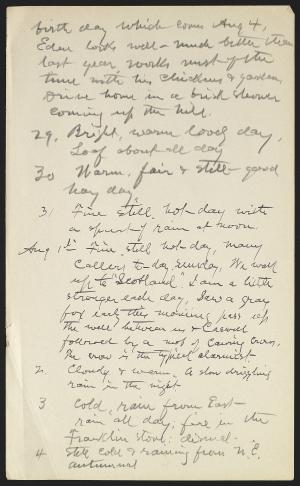 birth day which comes Aug 4,
Eden looks well - much better than
last year, works most of the
time with his chickens & garden
Drive home in a brisk shower
coming up the hill.
29. Bright, warm lovely day,
Loaf about all day
30 Warm, fair & still - good
hay day
31 Fine still hot - day with
a spurt of rain at noon.
Aug 1st Fine still hot - day, many
callers to-day, Sunday, We walk
up to "Scotland". I am a little
stronger each day, Saw a gray
fox early this morning pass up
the wall between us &
followed by a mob of cawing crows.
The crow is the typical alarmist.
2 Cloudy & warm. A slow drizzling
rain in the night
3 Cold, rain from East -
rain all day, fire in the
Franklin stove: dismal.
4 Still cold & raining from N.E.
autumnal